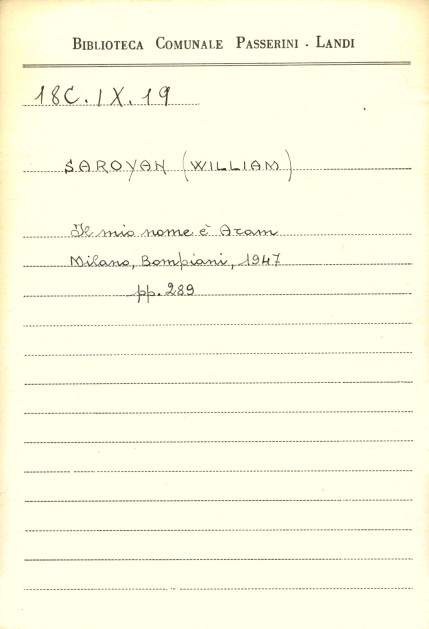 BIBLIOTECA COMUNALE PASSERINI - LANDI
18C.IX.19
SAROYAN (WILLIAM)
Il mio nome è Aram
Milano, Bompiani, 1947
pp. 289